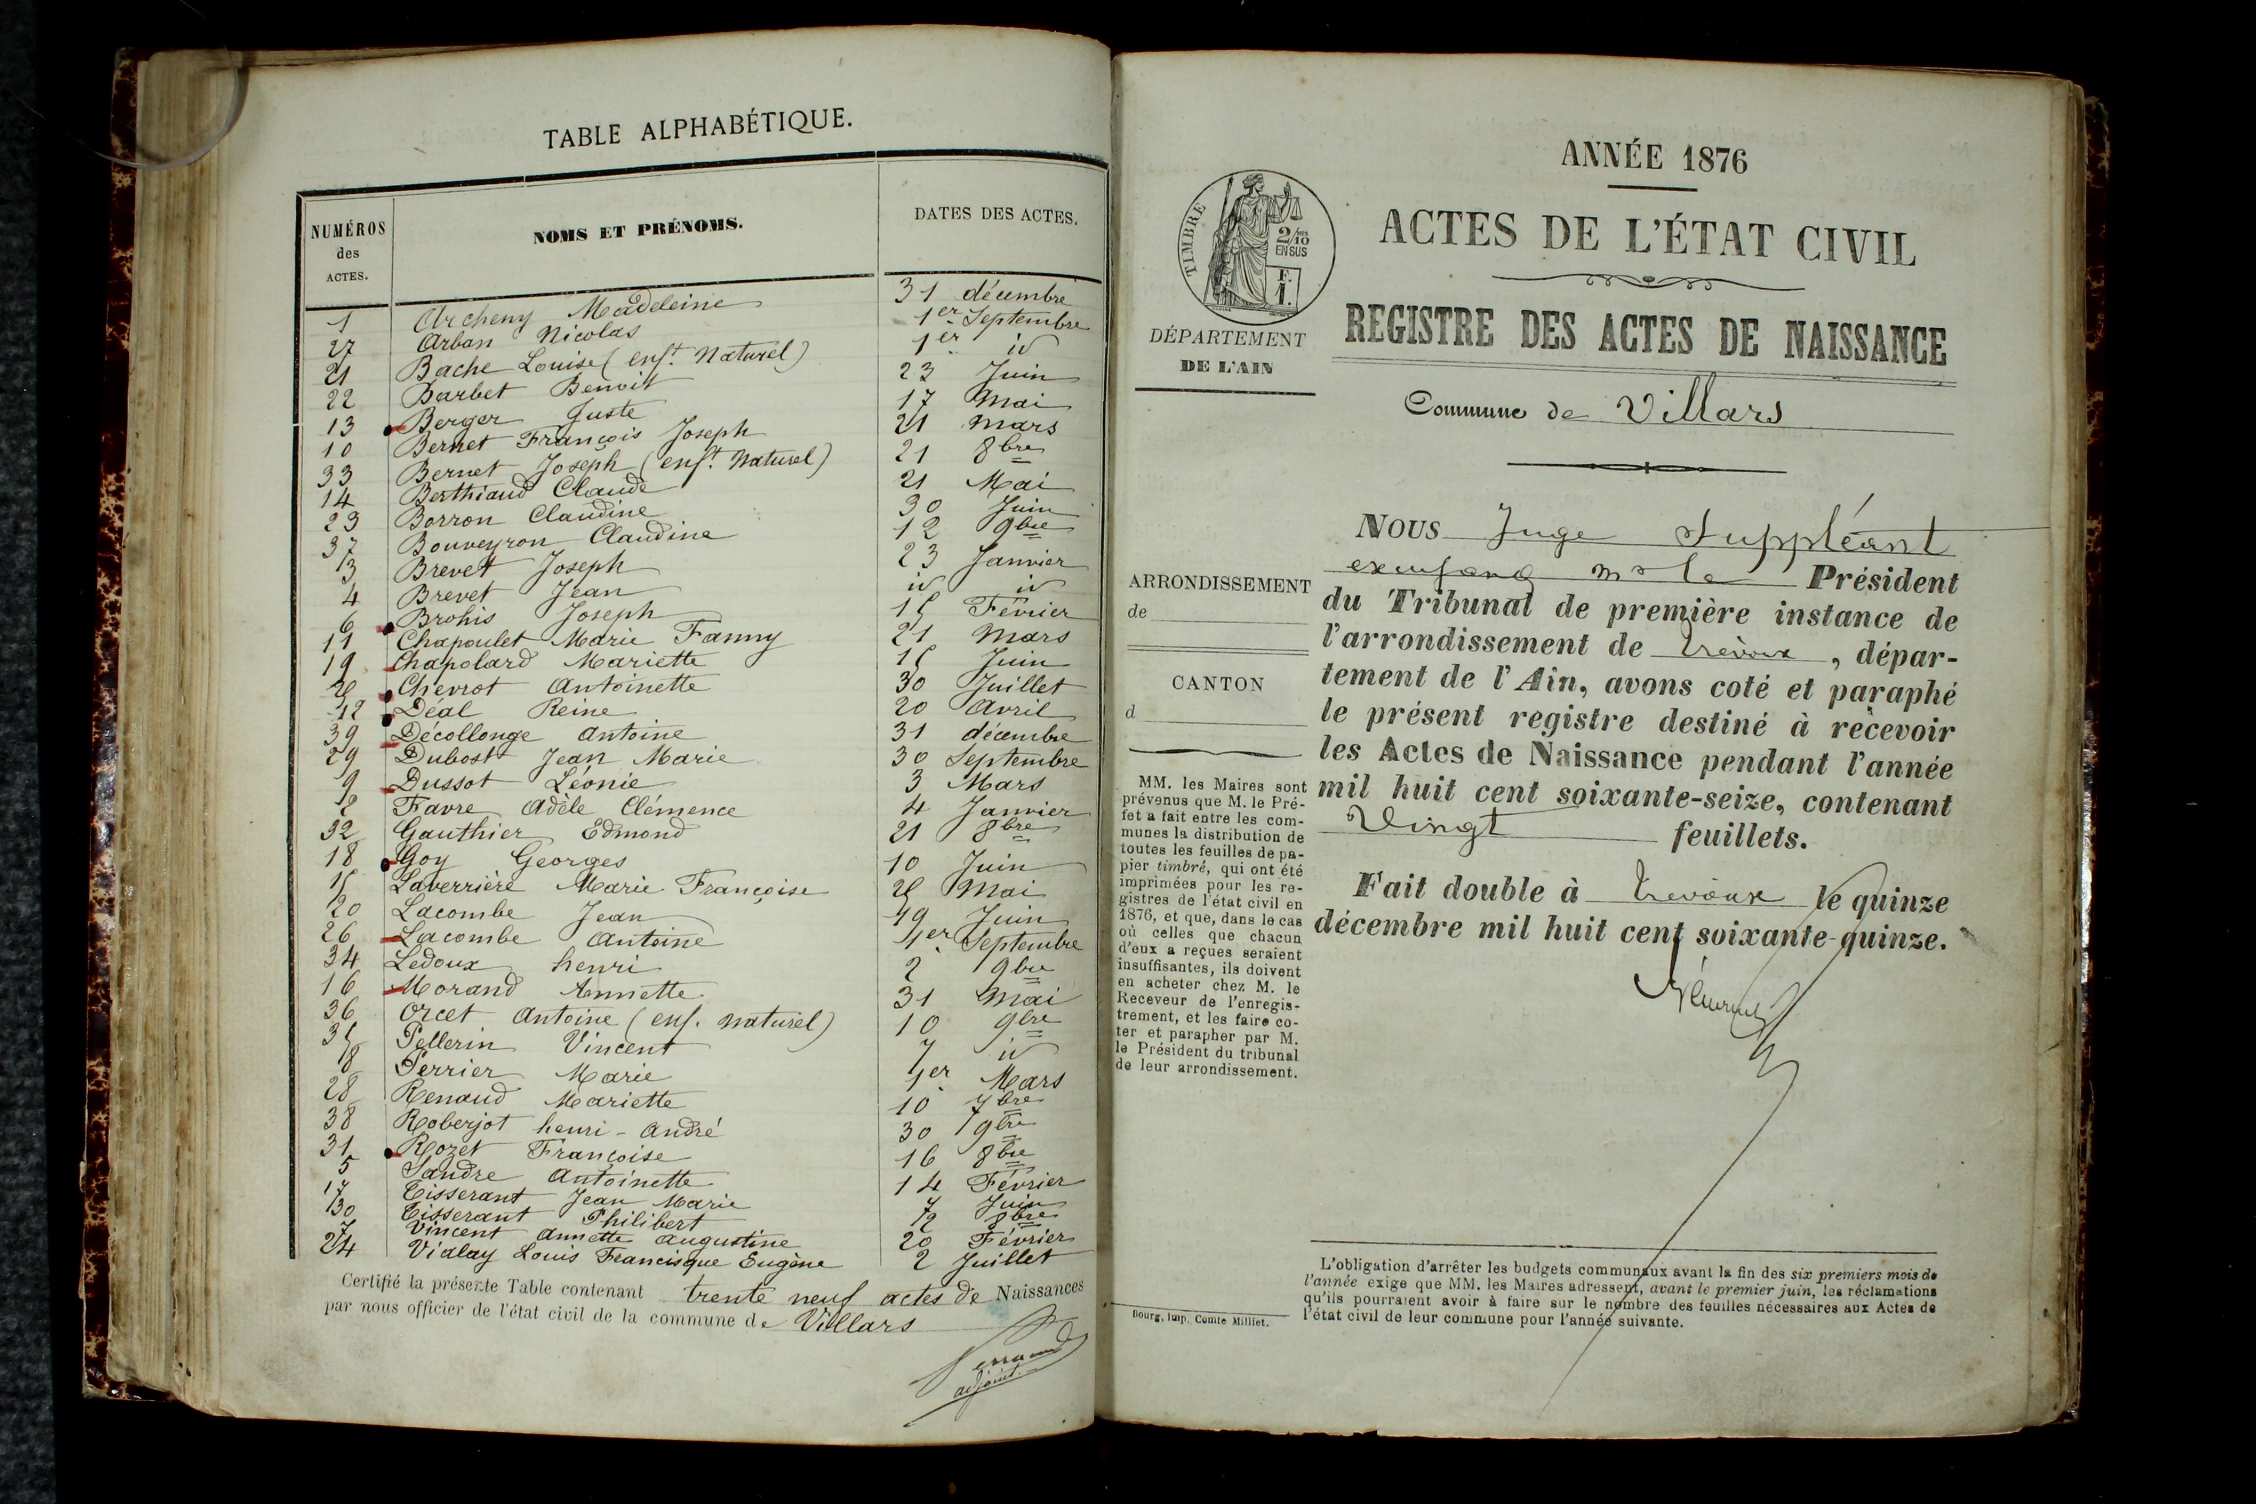 TABLE ALPHABÉTIQUE.
NUMÉROS des ACTES. NOMS ET PRÉNOMS. DATES DES ACTES.
1 Archeny Madeleine 31 décembre
27 Arban Nicolas 1er Septembre
21 Bache Louise (enft. Naturel) 1er id
22 Barbet Benoit 23 Juin
13 Berger Juste 17 Mai
10 Bernet François Joseph 21 Mars
33 Bernet Joseph (enft. Naturel) 21 8bre
14 Berthiaud Claude 21 Mai
23 Borron Claudine 30 Juin
37 Bouveyron Claudine 12 9bre
3 Brevet Joseph 23 Janvier
4 Brevet Jean id id
6 Brohis Joseph 15 Février
11 Chapoulet Marie Fanny 21 Mars
19 Chapolard Mariette 15 Juin
25 Chevrot Antoinette 30 Juillet
12 Déal Reine 20 Avril
39 Décollonge Antoine 31 décembre
29 Dubost Jean Marie 30 Septembre
9 Dussot Léonie 3 Mars
2 Favre Adèle Clémence 4 Janvier
32 Gauthier Edmond 21 8bre
18 Goy Georges 10 Juin
15 Laverrière Marie Françoise 25 Mai
20 Lacombe Jean 19 Juin
26 Lacombe Antoine 1er Septembre
34 Ledoux henri 2 9bre
16 Morand Annette 31 Mai
36 Orcet Antoine (enf. naturel) 10 9bre
35 Pellerin Vincent 7 id
8 Perrier Marie 1er Mars
28 Renaud Mariette 10 7bre
38 Roberjot henri - André 30 9bre
31 Rozet Françoise 16 8bre
5 Sandre Antoinette 14 Février
17 Tisserant Jean Marie 7 Juin
30 Tisserant Philibert 12 8bre
7 Vincent Annette Augustine 20 Février
24 Vialay Louis Francisque Eugène 2 Juillet
Certifié la présente Table contenant trente neuf actes de Naissances
par nous officier de l'état civil de la commune de Villars
adjoint.
ANNÉE 1876
ACTES DE L'ÉTAT CIVIL
TIMBRE
2/10 EN SUS
F. 1.
REGISTRE DES ACTES DE NAISSANCE
DÉPARTEMENT
DE L'AIN
Commune de Villars
ARRONDISSEMENT
de
CANTON
d
MM. les Maires sont
prévenus que M. le Pré-
fet a fait entre les com-
munes la distribution de
toutes les feuilles de pa-
pier timbré, qui ont été
imprimées pour les re-
gistres de l'état civil en
1876, et que, dans le cas
où celles que chacun
d'eux a reçues seraient
insuffisantes, ils doivent
en acheter chez M. le
Receveur de l'enregis-
trement, et les faire co-
ter et parapher par M.
le Président du tribunal
de leur arrondissement.
NOUS Juge Suppléant
Président
du Tribunal de première instance de
l'arrondissement de Trévoux, dépar-
tement de l'Ain, avons coté et paraphé
le présent registre destiné à recevoir
les Actes de Naissance pendant l'année
mil huit cent soixante-seize, contenant
Vingt feuillets.
Fait double à Trévoux le quinze
décembre mil huit cent soixante-quinze.
L'obligation d'arrêter les budgets communaux avant la fin des six premiers mois de
l'année exige que MM. les Maires adressent, avant le premier juin, les réclamations
qu'ils pourraient avoir à faire sur le nombre des feuilles nécessaires aux Actes de
l'état civil de leur commune pour l'année suivante.
Bourg, Imp. Comte Milliet.